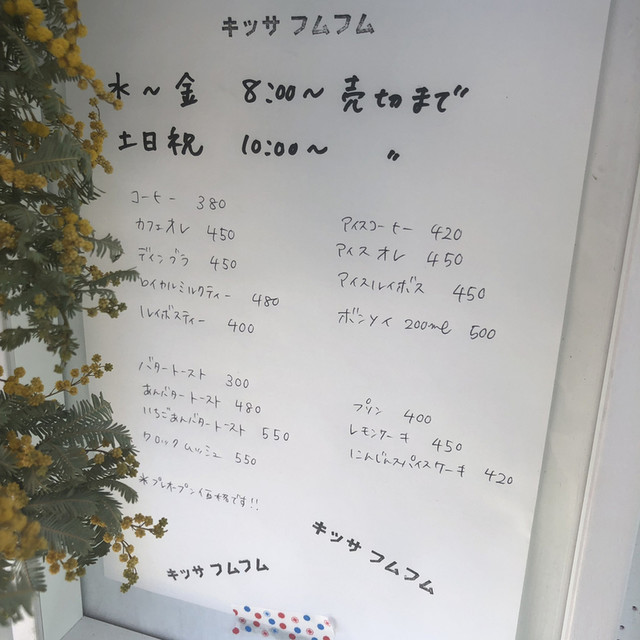 キッサ フムフム
水～金 8:00～売切まで
土日祝 10:00～ 〃
コーヒー 380
カフェオレ 450
ディンブラ 450
ロイヤルミルクティー 480
ルイボスティー 400
アイスコーヒー 420
アイスオレ 450
アイスルイボス 450
ボンソイ 200ml 500
バタートースト 300
あんバタートースト 480
いちごあんバタートースト 550
クロックムッシュ 550
プリン 400
レモンケーキ 450
にんじんスパイスケーキ 420
*プレオープン価格です!!
キッサ フムフム
キッサ フムフム